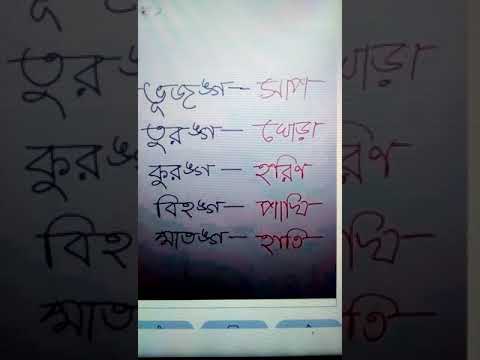 ভূজঙ্গ — সাপ
তুরঙ্গ — ঘোড়া
কুরঙ্গ — হরিণ
বিহঙ্গ — পাখি
মাতঙ্গ — হাতি